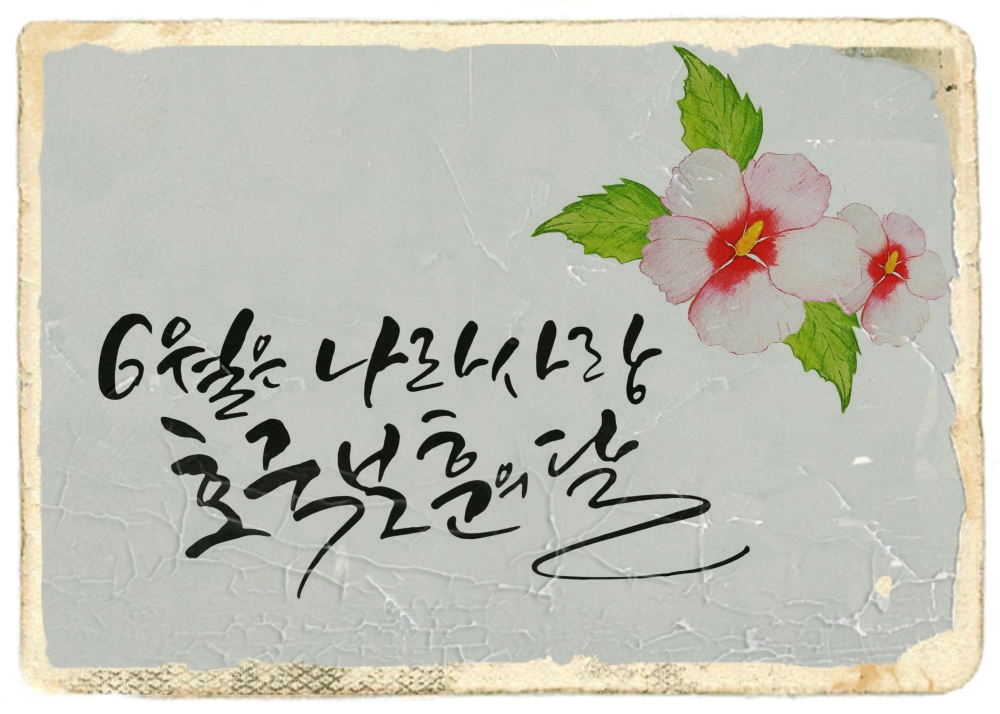 6월은 나라사랑
호국보훈의 달